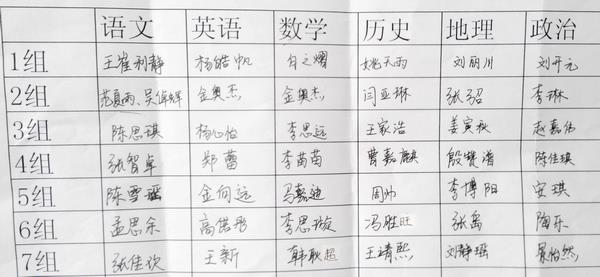 语文 英语 数学 历史 地理 政治
1组 王崔利静 杨皓帆 白之熠 姚天雨 刘丽川 刘开元
2组 范夏雨、吴倬辉 金奥杰 金奥杰 闫亚琳 张弨 李琳
3组 陈思琪 杨心怡 李思远 王家浩 姜寅秋 赵嘉伟
4组 张智卓 郑蕾 李苗苗 曹嘉麒 殷赞潽 陈佳琪
5组 陈雪瑶 金向远 马嘉迪 周帅 李博阳 安琪
6组 孟思余 高偌彤 李思璇 冯胜旺 张禹 陶乐
7组 张佳欢 王新 韩耿超 王靖熙 刘静瑶 晁怡然